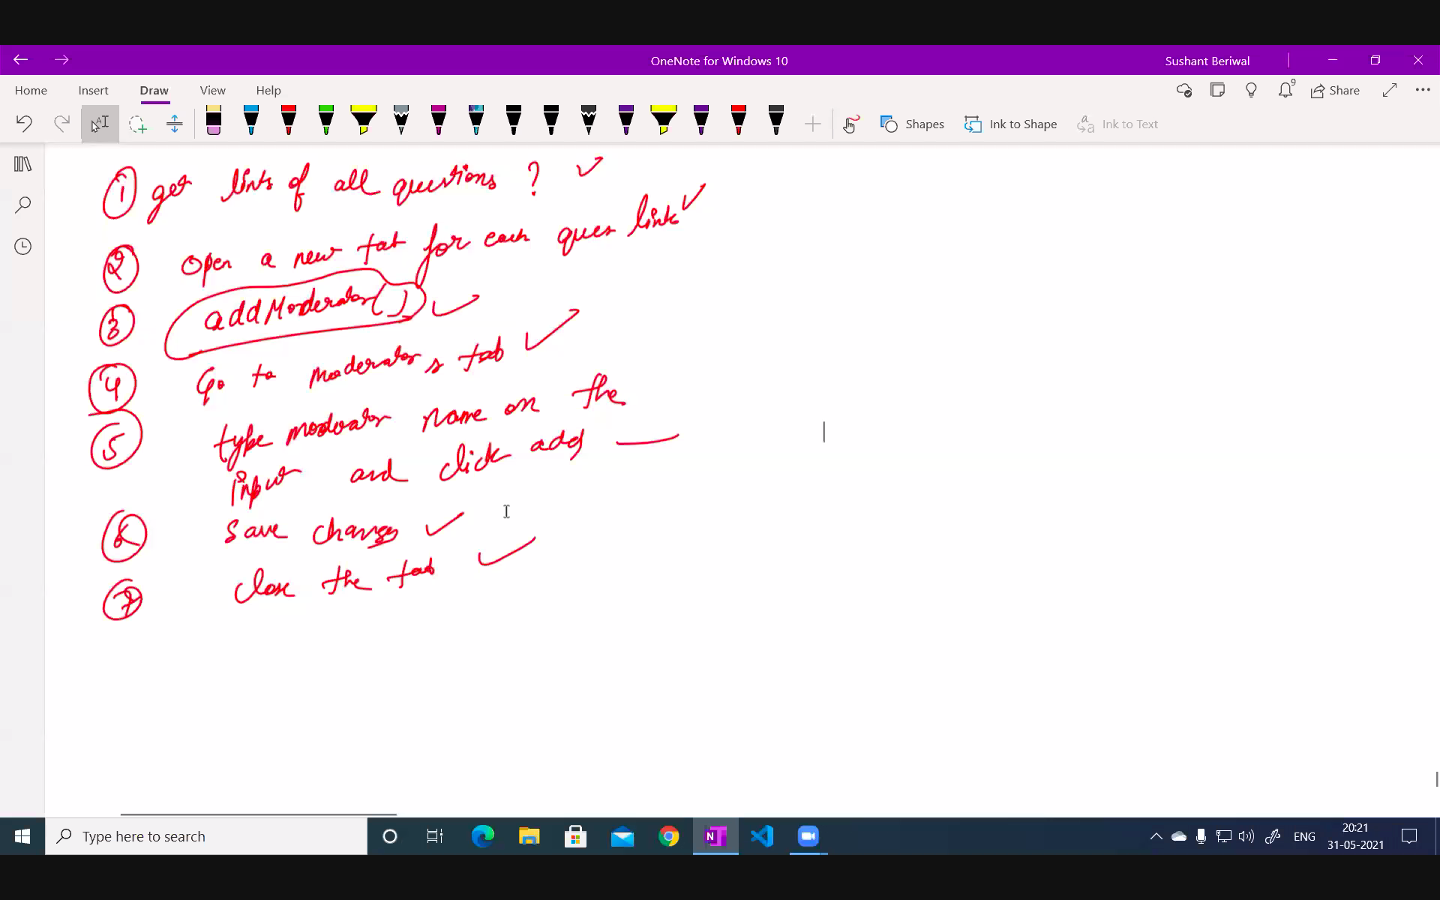 OneNote for Windows 10
Sushant Beriwal
Home Insert Draw View Help
9
Share
Shapes
Ink to Shape
Ink to Text
1 get links of all questions ?
2 Open a new tab for each ques link
3 addModerator()
4 Go to moderators tab
5 type moderator name on the
input and click add
6 Save changes
7 close the tab
Type here to search
ENG
20:21
31-05-2021